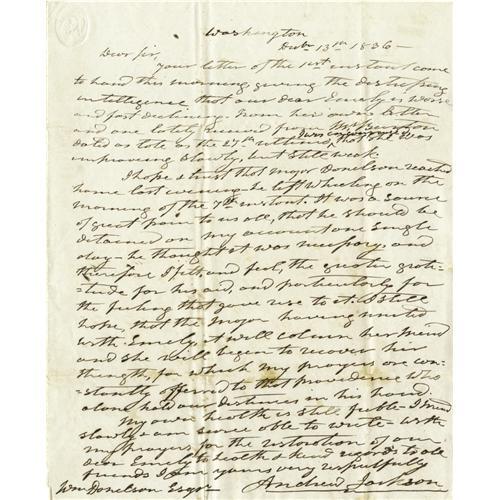 Washington
Decbr 13th 1836—
Dear Sir
your letter of the 1st instant came
to hand this morning giving the distressing
intelligence that our dear Emely is worse
and fast declining. From her own letter
and one lately received from
dated as late as the 27th ultimo, I was that she was
improving slowly, but still weak.
I hope & trust that Major Donelson reached
home last evening—he left Wheeling on the
morning of the 7th instant. It was a source
of great pain to us all, that he should be
detained on my account one single
day—he thought it was necessary, and
therefore I felt, and feel, the greater grati-
-tude for his aid, and particularly for
the feeling that gave rise to it. I still
hope, that the Major having united
with Emely, it will calm her mind
and she will begin to recover her
strength, for which my prayers are con-
-stantly offered to that providence who
alone holds our distinies in his hand.
My own health is still feeble—I mend
slowly & am scarce able to write—with
my prayers for the restoration of our
dear Emely to health & kind regards to all
friends I am yours very respectfully
Andrew Jackson
Wm Donelson Esqr.